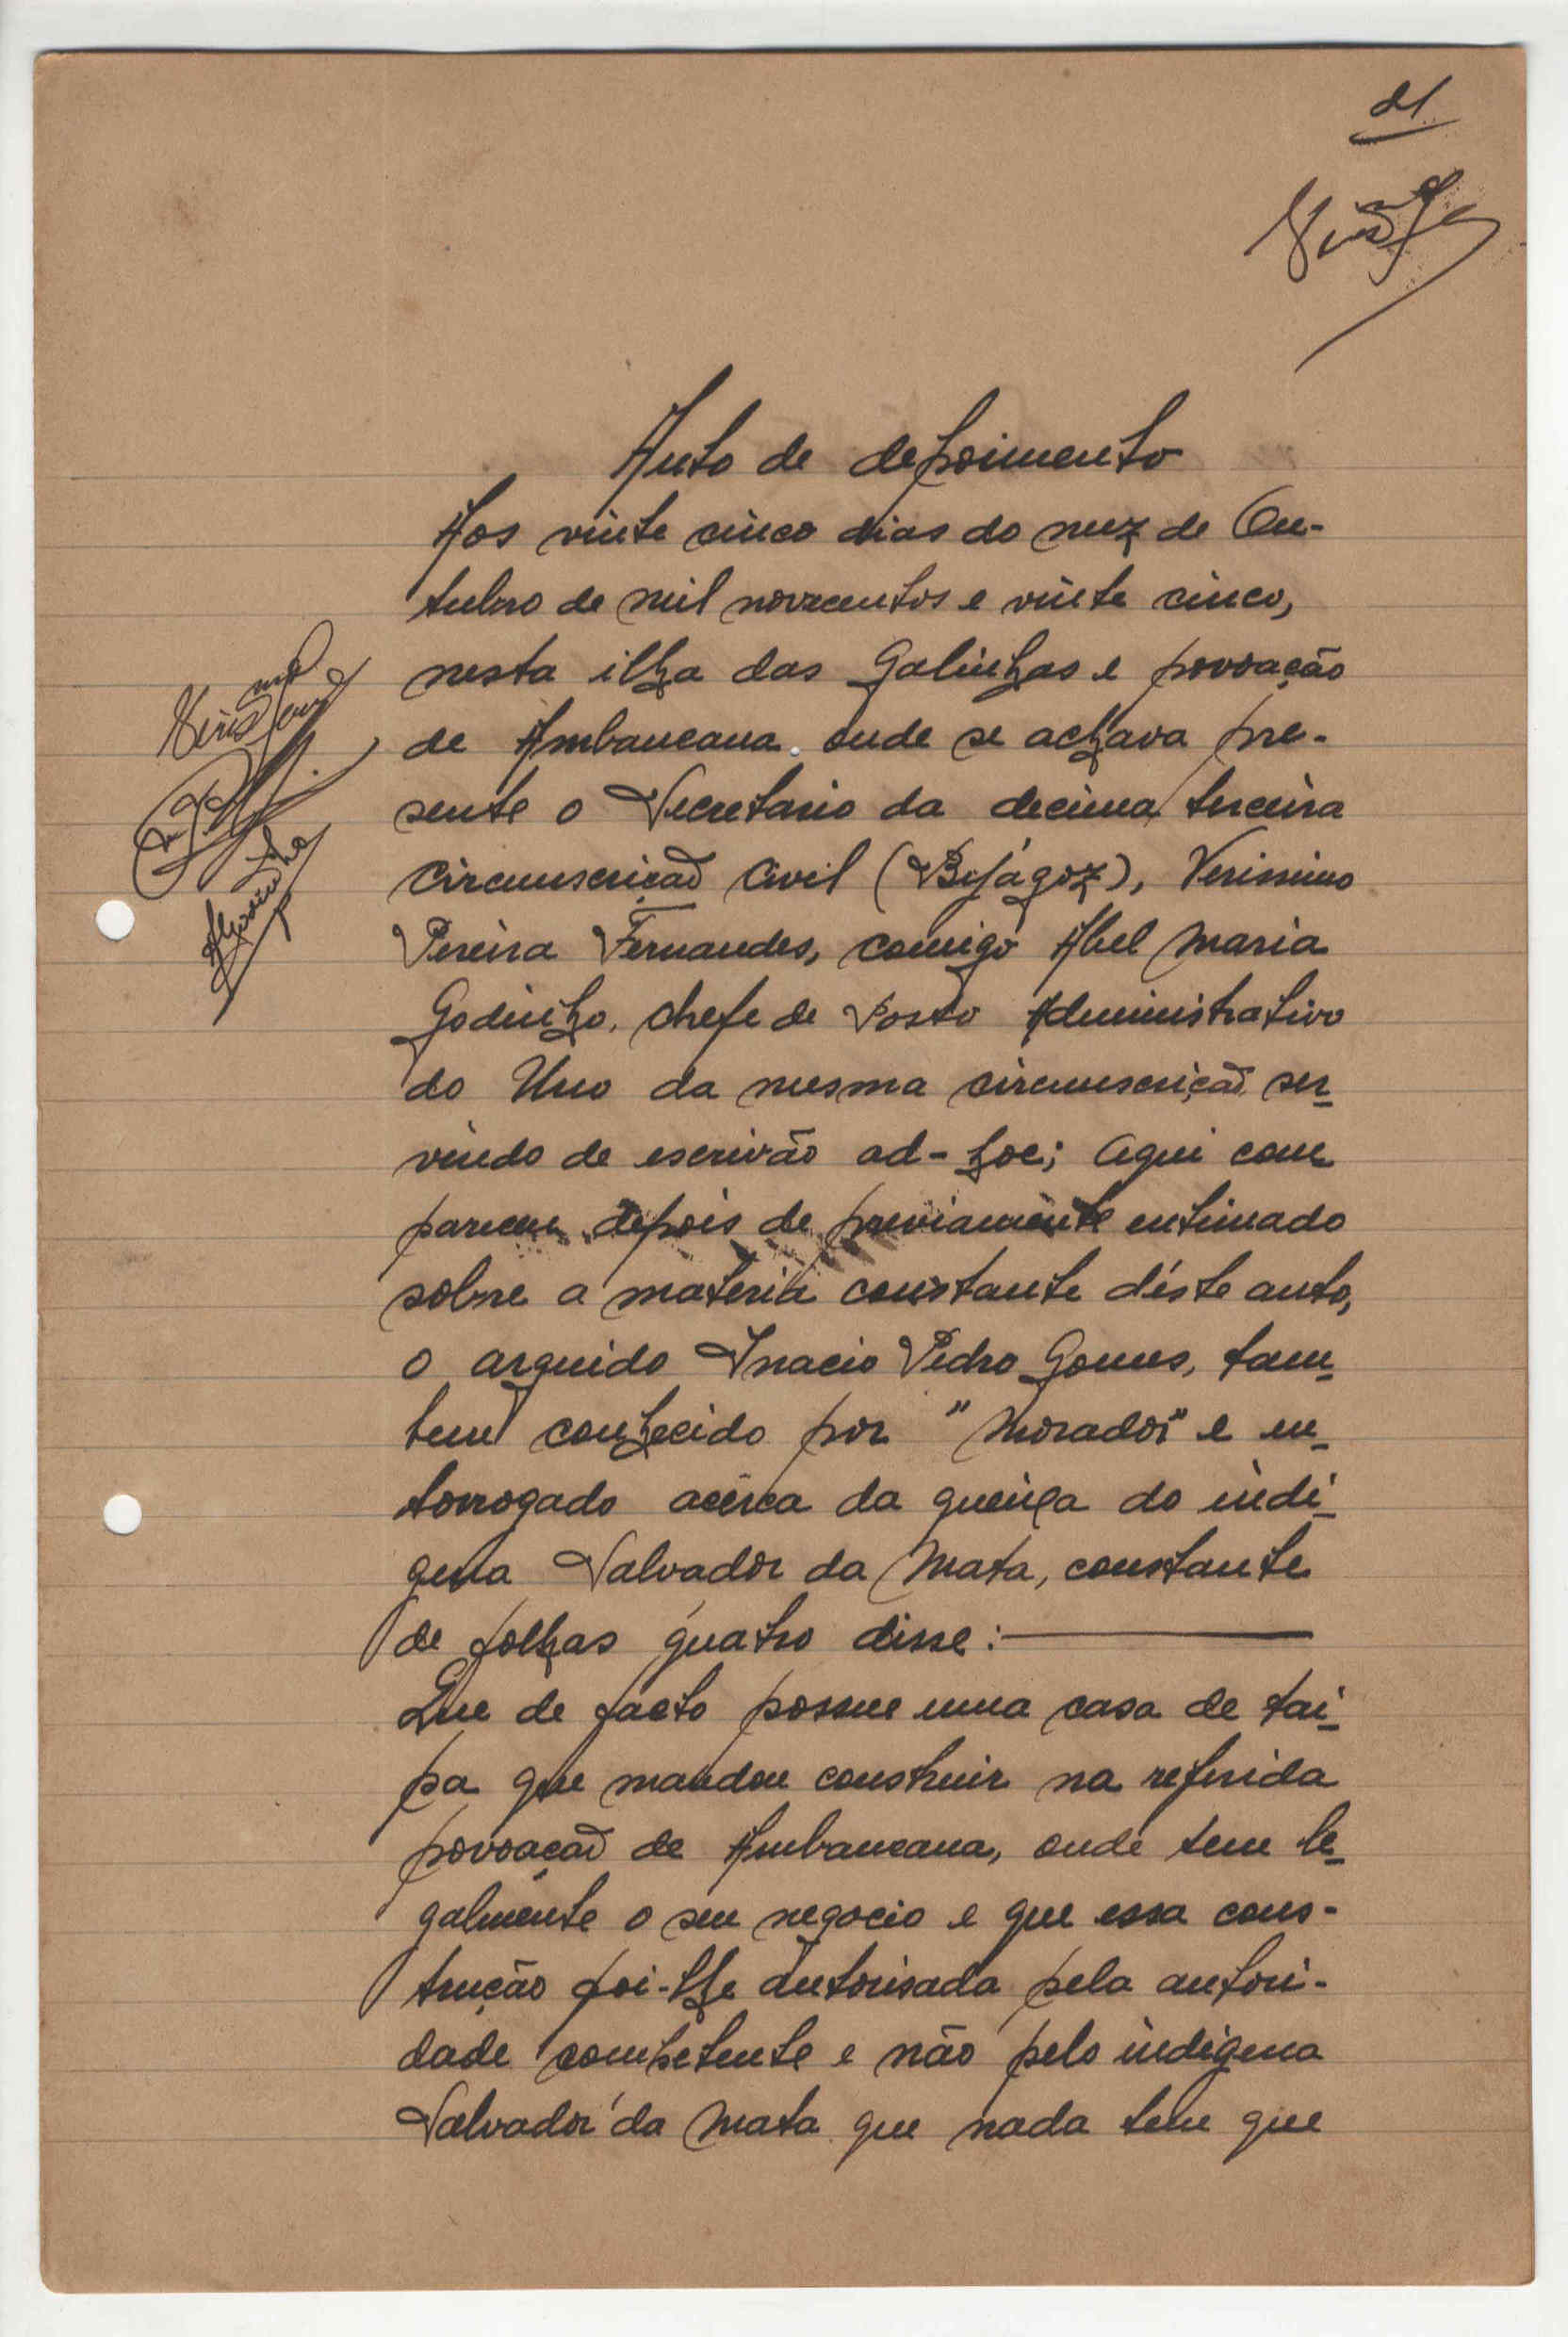 21
Auto de depoimento
Aos vinte cinco dias do mez de Ou-
tubro de mil novecentos e vinte cinco,
nesta ilha das Galinhas e povoação
de Ambancana. onde se achava pre-
sente o Secretario da decima terceira
circunscrição Civil (Bijágoz), Verissimo
Pereira Fernandes, comigo Abel Maria
Godinho, chefe de Posto Administrativo
do Uno da mesma circunscrição ser-
vindo de escrivão ad-hoc; aqui com
pareceu depois de previamente entimado
sobre a materia constante déste auto,
o arguido Inacio Pedro Gomes, tam-
bem conhecido por "Morador" e in-
torrogado acêrca da queixa do indi-
gena Salvador da Mata, constante
de folhas quatro disse:—
Que de facto possue uma casa de tai-
pa que mandou construir na referida
povoação de Ambancana, onde tem le-
galmente o seu negocio e que essa cons-
trução foi-lhe autorisada pela autori-
dade competente e não pelo indigena
Salvador da Mata que nada tem que